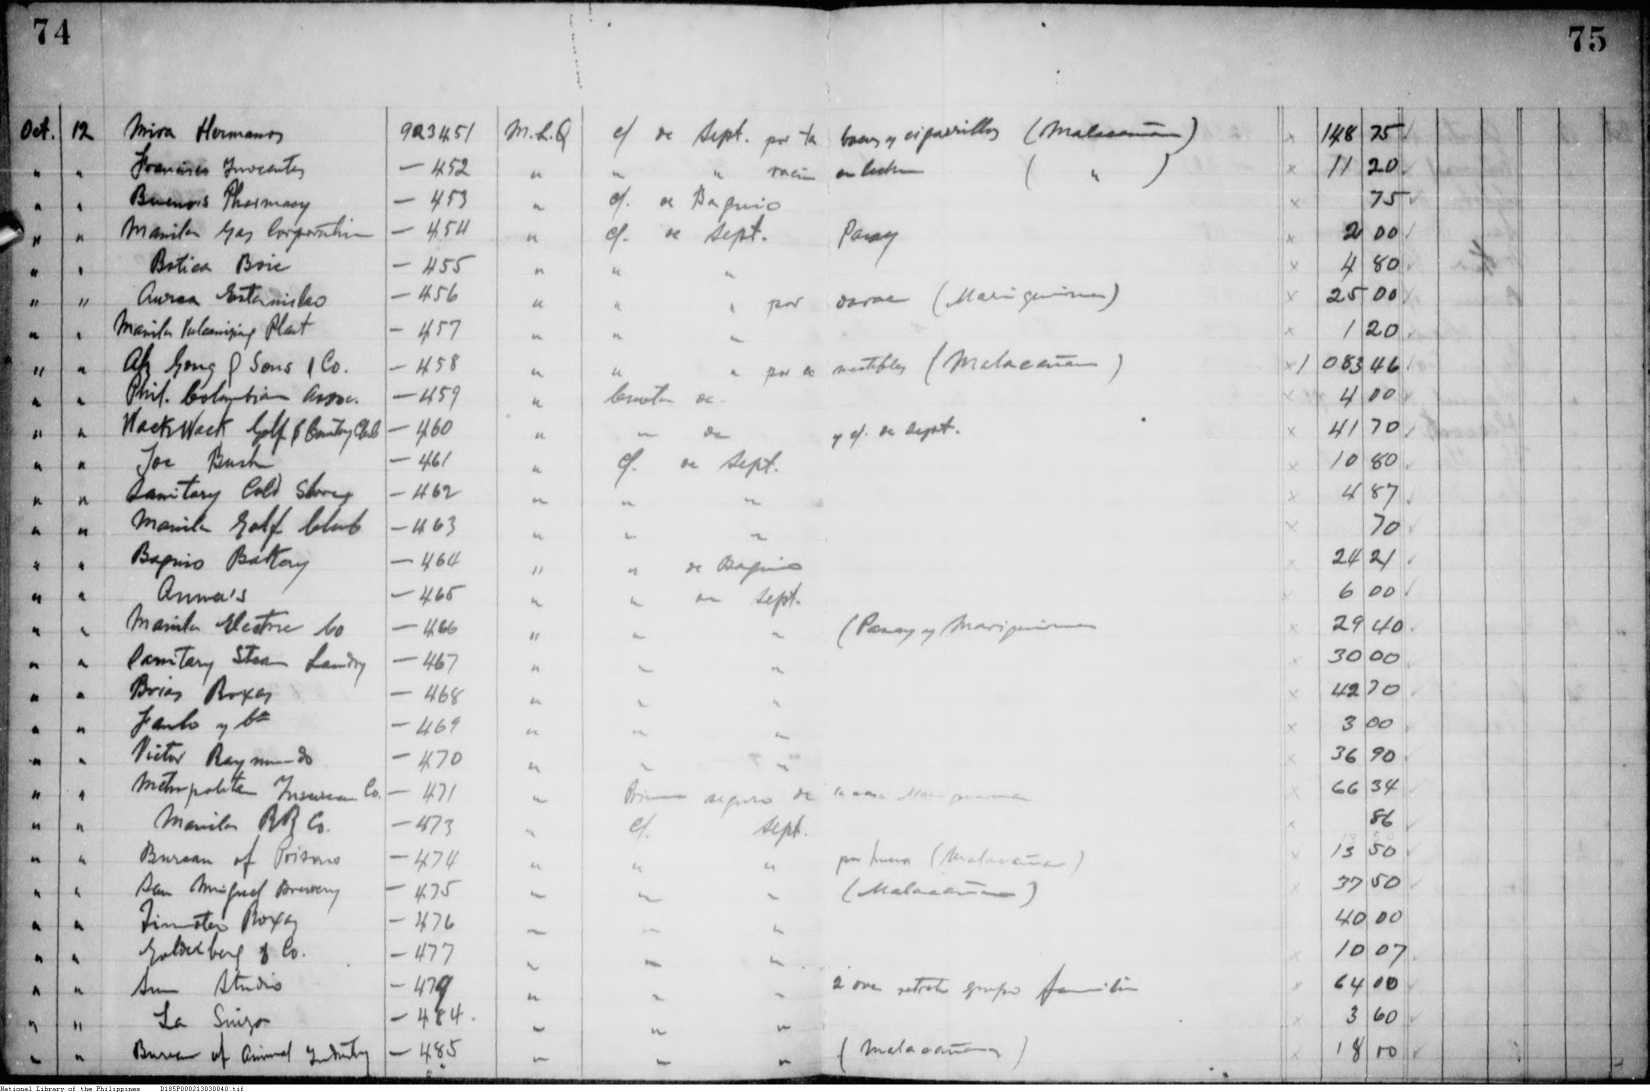 74 75
Oct. 12 Mira Hermanos 923451 M.L.Q c/ de Sept. por ta bacos y cigarrillos (Malacañan) x 148 75
" " Francisco Inocentes — 452 " " " racion en leche ( " ) x 11 20
" " Buenos Pharmacy — 453 " c/. de Baguio x 75
" " Manila Gas Corporation — 454 " c/. de Sept. Pasay x 2 00
" " Botica Boie — 455 " " " x 4 80
" " Aurea Estanislao — 456 " " " por (Mariquina) x 25 00
" " Manila Vulcanizing Plant — 457 " " " x 1 20
" " Ah Gong & Sons & Co. — 458 " " " por co mestibles (Malacañan) x 1 083 46
" " Phil. Columbian Assoc. — 459 " Cuota de x 4 00
" " Wack Wack Golf & Country Club — 460 " " de y c/. de Sept. x 41 70
" " Joe Bush — 461 " c/. de Sept. x 10 80
" " Sanitary Cold Storeg — 462 " " " x 4 87
" " Manila Golf Club — 463 " " " x 70
" " Baguio Bakery — 464 " " de Baguio 24 21
" " Anna's — 465 " " de Sept. 6 00
" " Manila Electric Co — 466 " " " (Pasay y Mariquina x 29 40
" " Sanitary Steam Laundry — 467 " " " 30 00
" " Borias Roxas — 468 " " " x 42 70
" " y Ca — 469 " " " x 3 00
" " Victor Raymundo — 470 " " " x 36 90
" " Metropolitan Insurance Co. — 471 " Prima seguro de la casa Mariquina x 66 34
" " Manila RR Co. — 473 " c/. Sept. x 86
" " Bureau of Prisons — 474 " " " por (Malacañan) x 13 50
" " San Miguel Brewery — 475 " " " (Malacañan) x 37 50
" " Timoteo Roxas — 476 " " " 40 00
" " Goldenberg & Co. — 477 " " " x 10 07
" " Sun Studio — 479 " " " 2 retrato grupo familia x 64 00
" " La Suiza — 484. " " " x 3 60
" " Bureau of Animal Industry — 485 " " " (Malacañan) x 18 00
National Library of the Philippines D185P000213030040.tif